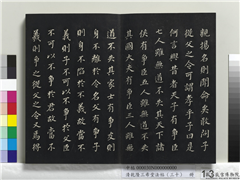 親揚名則聞命矣敢問子
從父之令可謂孝乎子曰是
何言與昔者天子有爭臣
七人雖無道不失天下諸
侯有爭臣五人雖無道不失
其國大夫有爭臣三人雖無
道不失其家士有爭友則
身不離於令名父有爭子
則身不陷於不義故當不
義則子不可以不爭於父臣
不可以不爭於君故當不
義則爭之從父之令又焉得
清乾隆三希堂法帖(三十) 冊
故宮博物院